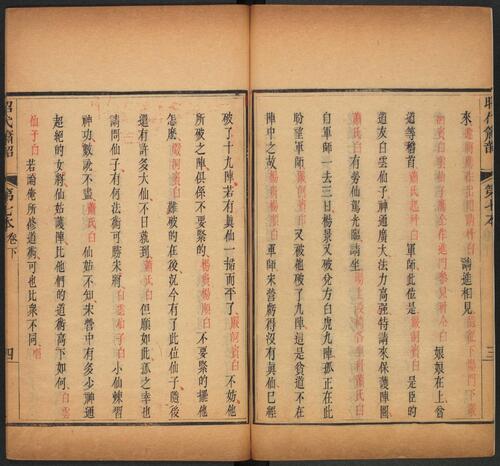 昭代簫韶
第七本
三
來
請進相見
娘娘在上貧
道等稽首
軍師此位是
嚴洞賓白
是臣的
道友白雲仙子神通廣大法力高強特請來保護陣圖
蕭氏白
有勞仙駕光臨請坐
自軍師一去三日楊景又破分方白虎九陣孤正在此
盼望軍師
嚴洞賓白
又被他破了九陣這是貧道不在
陣中之故
軍師宋營虧得沒有真仙已經
破了十九陣若有真仙一掃而平了
嚴洞賓白
不妨他
所破之陣俱係不要緊的
不要緊的擺他
怎麽
嚴洞賓白
難破的在後就今有了此位仙子隨後
還有許多大仙不日就到
蕭氏白
但願如此孤之幸也
請問仙子有何法術可勝宋將
白雲仙子白
小仙煉習
神功數說不盡
蕭氏白
仙姑不知宋營中有多少神通
起絕的女將仙姑護陣比他們的道術高下如何
白雲
仙子白
若論俺所修道術可也比衆不同
唱
昭代簫韶
第七本卷下
四